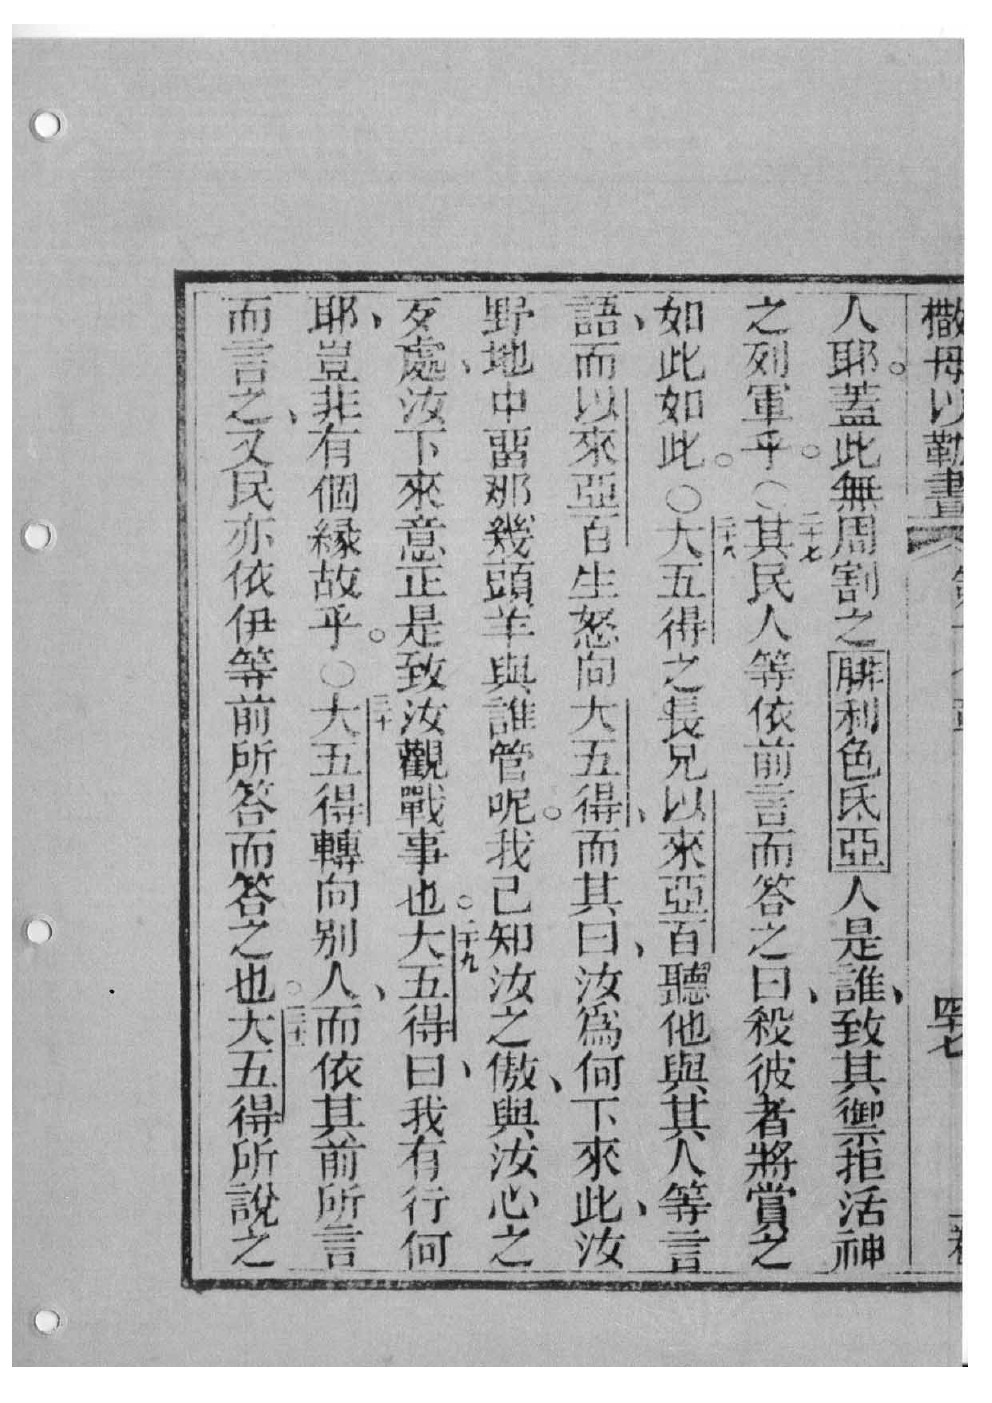 撒母以勒書 第十七章 四七 一卷
人耶。蓋此無周割之腓利色氐亞人是誰、致其禦拒活神
之列軍乎。○二十七其民人等依前言而答之曰、殺彼者將賞之
如此如此。○二十八大五得之長兄以來亞百聽他與其人等言
語、而以來亞百生怒向大五得、而其曰、汝為何下來此、汝
野地中畱那幾頭羊與誰管呢。我己知汝之傲、與汝心之
歹處、汝下來意正是致汝觀戰事也。二十九大五得曰、我有行何
耶、豈非有個緣故乎。○三十大五得轉向別人、而依其前所言
而言之、又民亦依伊等前所答而答之也。三十一大五得所說之